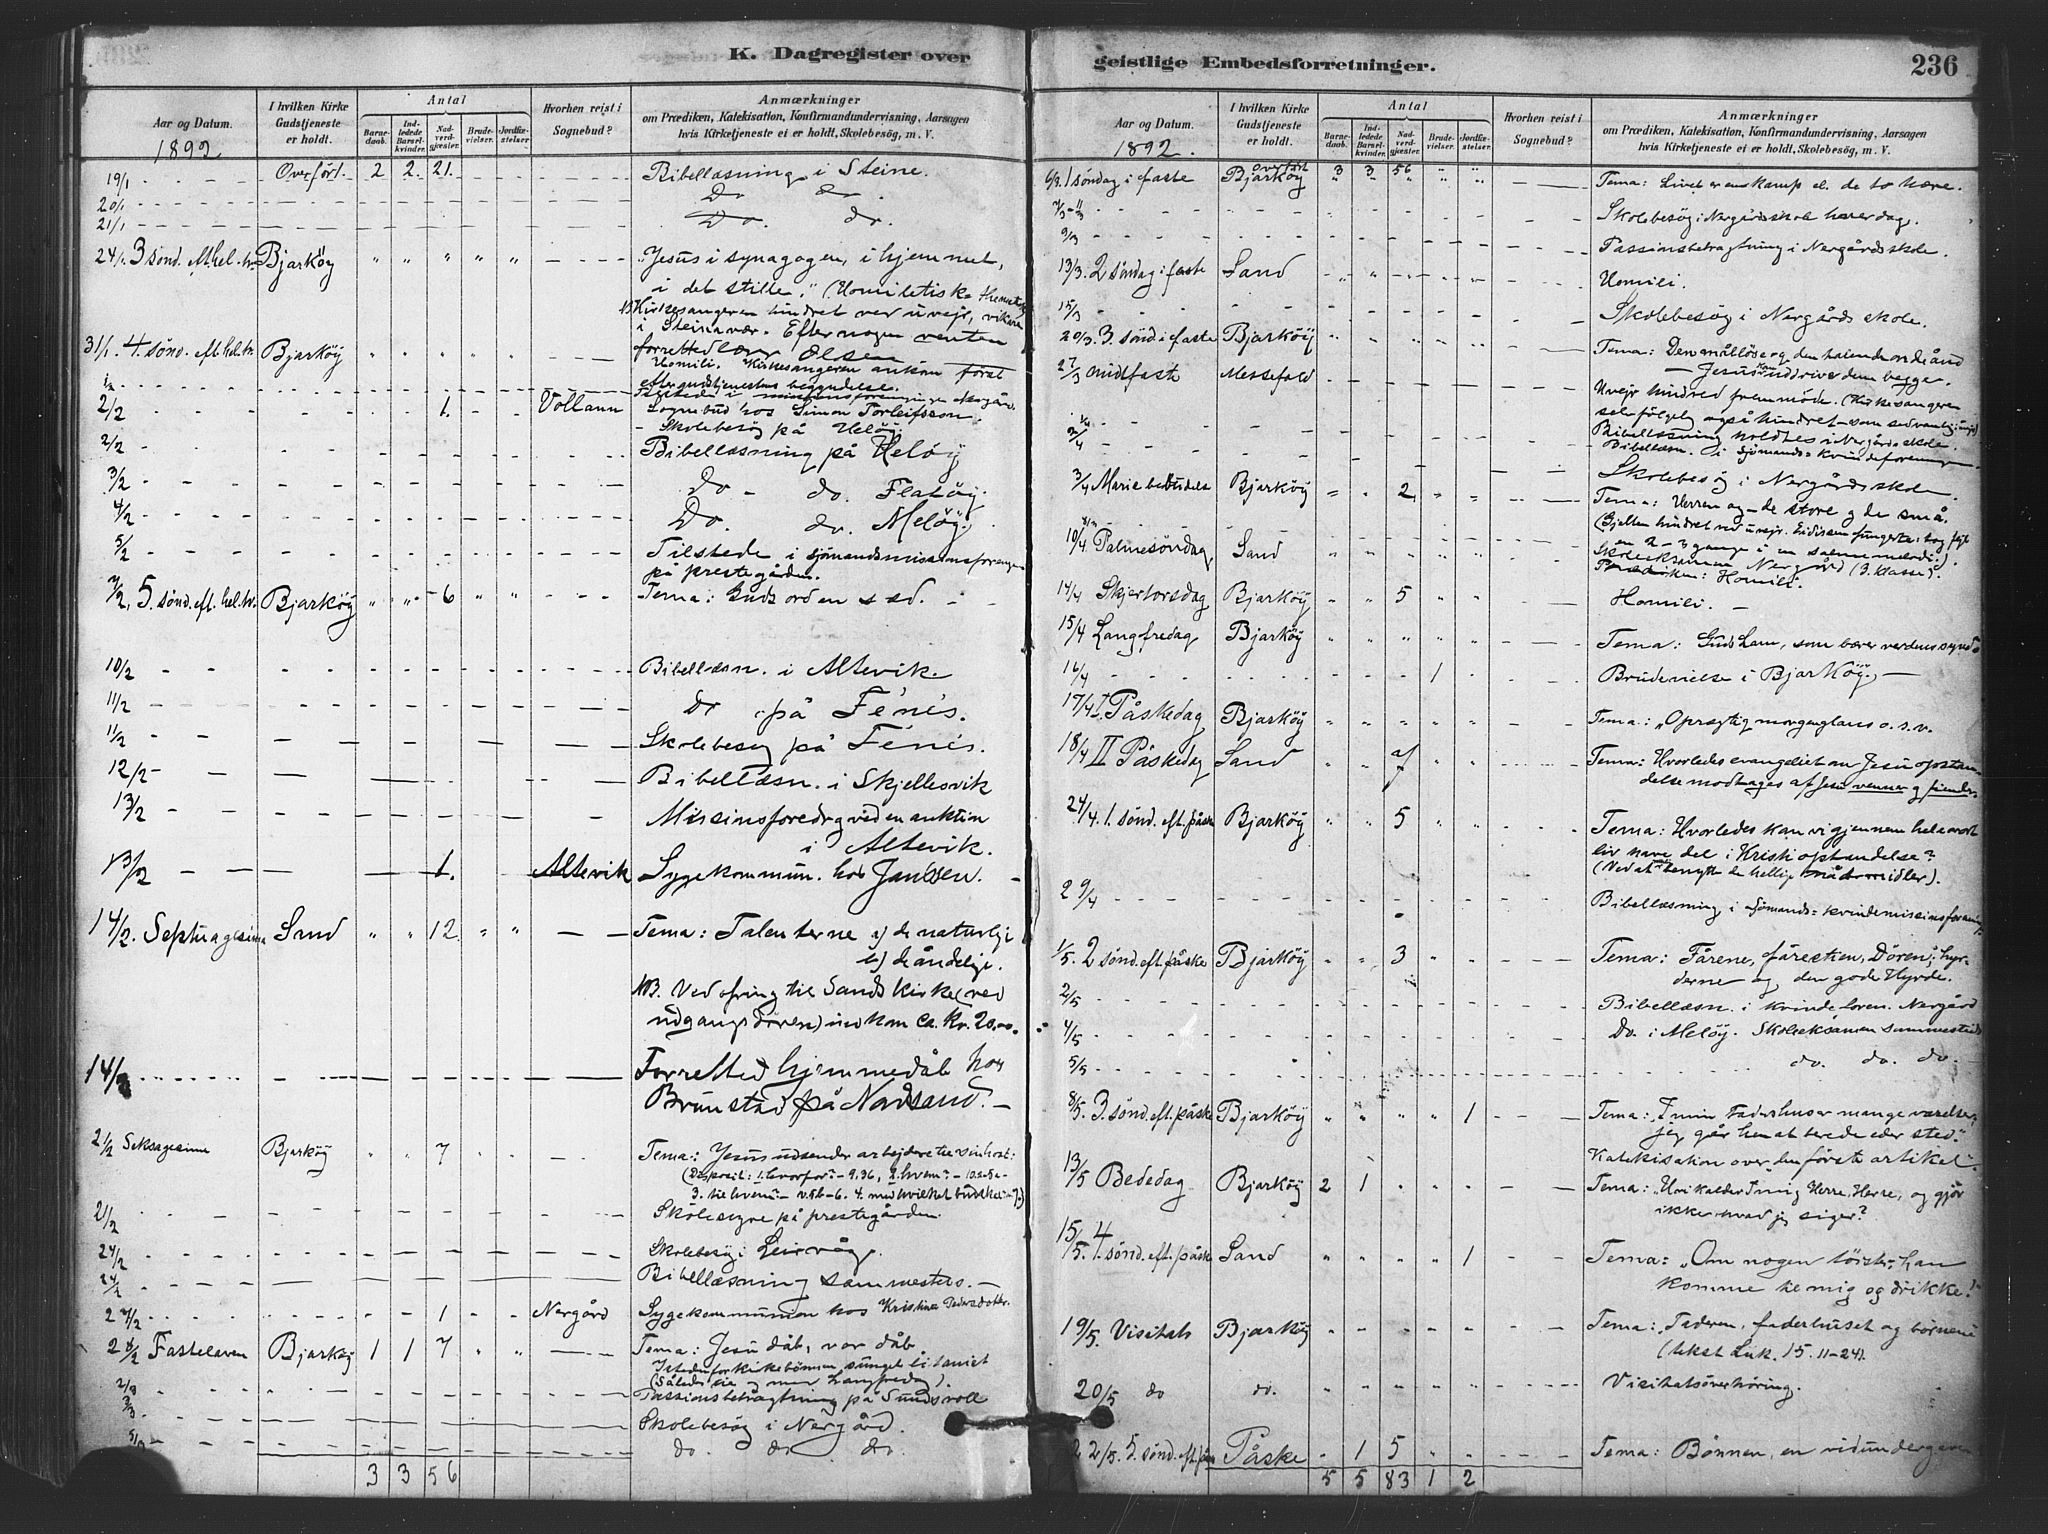 K. Dagregister over
Aar og Datum.
1892
I hvilken Kirke Gudstjeneste er holdt.
Antal
Barnedaab.
Indledede Barselkvinder.
Nadverdgjæster.
Brudevielser.
Jordfæstelser
Hvorhen reist i Sognebud?
Anmærkninger
om Prædiken, Katekisation, Konfirmandundervisning, Aarsagen
hvis Kirketjeneste ei er holdt, Skolebesøg, m. V.
19/1 Overført. 2 2 21. Bibellæsning i Steine.
20/1 Do do
21/1 Do. do.
24/1 3 sønd. Bjarköy " " " " " "Jesus i synagogen, i hjemmet,
i det stille." (Homiletisk
Kirkesangeren hindret ved uvejr,
i Steinavær. Efter nogen venten
31/1. 4. sønd. eft. hel. tr. Bjarköy " " " " " forretted lærer Olsen
Homili. Kirkesangeren ankom først
efter gudstjenestens begyndelse.
2/2 1. Vollann Sognebud hos Simon Torleifsson.
2/2 Skolebesøg på Helöy.
Bibellæsning på Helöy
3/2 Do do. Flatöy.
4/2 Do. do. Melöy.
5/2 Tilstede i sjömandsmissionsforeningen
på prestegården.
7/2. 5. sønd. eft. hel. tr. Bjarköy " " 6 " " Tema: Guds ord en sæd.
10/2 Bibellæsn. i Altevik.
11/2 Do på Fenes.
11/2 Skolebesøg på Fenes.
12/2 Bibellæsn. i Skjellesvik
13/2 Missionsforedrag ved en auktion
i Altevik.
13/2 1. Altevik Sygekommun. hos Janssen.
14/2. Septuagesima Sand " " 12 " " Tema: Talenterne a) de naturlige
b) de åndelige.
NB. Ved ofring til Sands kirke (ved
udgangsdøren) indkom ca. kr. 20.00.
14/2 Forretted hjemmedåb hos
Brunstad på Nordsand.
21/2 Seksagesima Bjarköy " " 7 " " Tema: Jesus udsender arbejdere til sin høst:
21/2 på prestegården
24/2 Skolebesøg i Leirvåg.
24/2 Bibellæsning sammesteds.
27/2 1 Nergård Sygekommunion hos Kristine Pedersdatter.
28/2 Fastelaven Bjarköy 1 1 7 " " Tema: Jesu dåb, vor dåb.
Istedenfor kirkebønnen sunget litaniet
2/3 Passionsbetragtning på Sundsvoll
3/3 Skolebesøg i Nergård.
5/3 do. do do.
3 3 56
geistlige Embedsforretninger.
236
Aar og Datum.
1892.
I hvilken Kirke Gudstjeneste er holdt.
Antal
Barnedaab.
Indledede Barselkvinder.
Nadverdgjæster.
Brudevielser.
Jordfæstelser.
Hvorhen reist i Sognebud?
Anmærkninger
om Prædiken, Katekisation, Konfirmandundervisning, Aarsagen
hvis Kirketjeneste ei er holdt, Skolebesøg, m. V.
Overført 3 3 56 " "
6/3. 1 søndag i faste Bjarköy Tema: Livet er en kamp el. de to hære.
7/3 - 11/3 Skolebesøg i Nergårds skole hver dag.
9/3 Passionsbetragtning i Nergårds skole.
13/3. 2 søndag i faste Sand Homili.
15/3 Skolebesøg i Nergårds skole.
20/3. 3. sønd i faste Bjarköy Tema: Den målløse og den talende onde ånd
— Jesus uddriver dem begge.
27/3 midfaste Messefald Uvejr hindred fremmöde. (Kirkesangeren
selvfølgelig også hindret - som sedvanlig i uvejr)
1/4 Bibellæsning holdtes i Nergårds skole
2/4 Bibellæsn. i sjömands-kvindeforeningen
Skolebesøg i Nergårds skole.
3/4 Marie bebudelse Bjarköy " " 2 " " Tema: Herren og de store og de små.
10/4 Palmesöndag Sand Skoleeksamen Nergård (3. klasse).
Prædiken: Homili.
14/4 Skjertorsdag Bjarköy " " 5 " " Homili.
15/4 Langfredag Bjarköy " " " " " Tema: Guds Lam, som bærer verdens synd
16/4 1 Brudevielse i Bjarköy.
17/4 I. Påskedag Bjarköy " " " " " Tema: "Oprigtig morgenglans o.s.v.
18/4 II Påskedag Sand Tema: Hvorledes evangeliet om Jesu opstandelse
modtages af Jesu venner og fiender.
24/4. 1. sønd. eft. påske Bjarköy " " 5 " " Tema: Hvorledes kan vi gjennem hela vort
liv have del i Kristi opstandelse?
(Ved at benytte de hellige nådemidler).
29/4 Bibellæsning i sjömands-kvindemissionsforening
1/5. 2 sønd. eft. påske Bjarköy " " 3 " " Tema: Fårene, fårestien, Døren, hyrderne
og den gode Hyrde.
2/5 Bibellæsn. i kvindeforen. Nergård
4/5 Do. i Melöy. Skoleeksamen sammesteds
5/5 do. do. do.
8/5. 3. sønd. eft. påske Bjarköy " " " " 1 Tema: "I min Faders hus er mange værelser,
jeg går hen at berede eder sted."
Katekisation over "den første artikel".
13/5 Bededag Bjarköy 2 1 " " " Tema: "Hvi kalder I mig Herre, Herre, og gjør
ikke hvad jeg siger?
15/5. 4. sønd. eft. påske Sand " " " " 1 Tema: "Om nogen tørster, han
komme til mig og drikke!"
19/5. Visitats Bjarköy Tema: "Faderen, faderhuset og børnene
(tekst Luk. 15. 11-24).
20/5 do do. Visitatsoverhöring.
22/5. 5. sønd. eft. påske Påske 1 5 Tema: Bønnen, en vidundergave
5 5 83 1 2